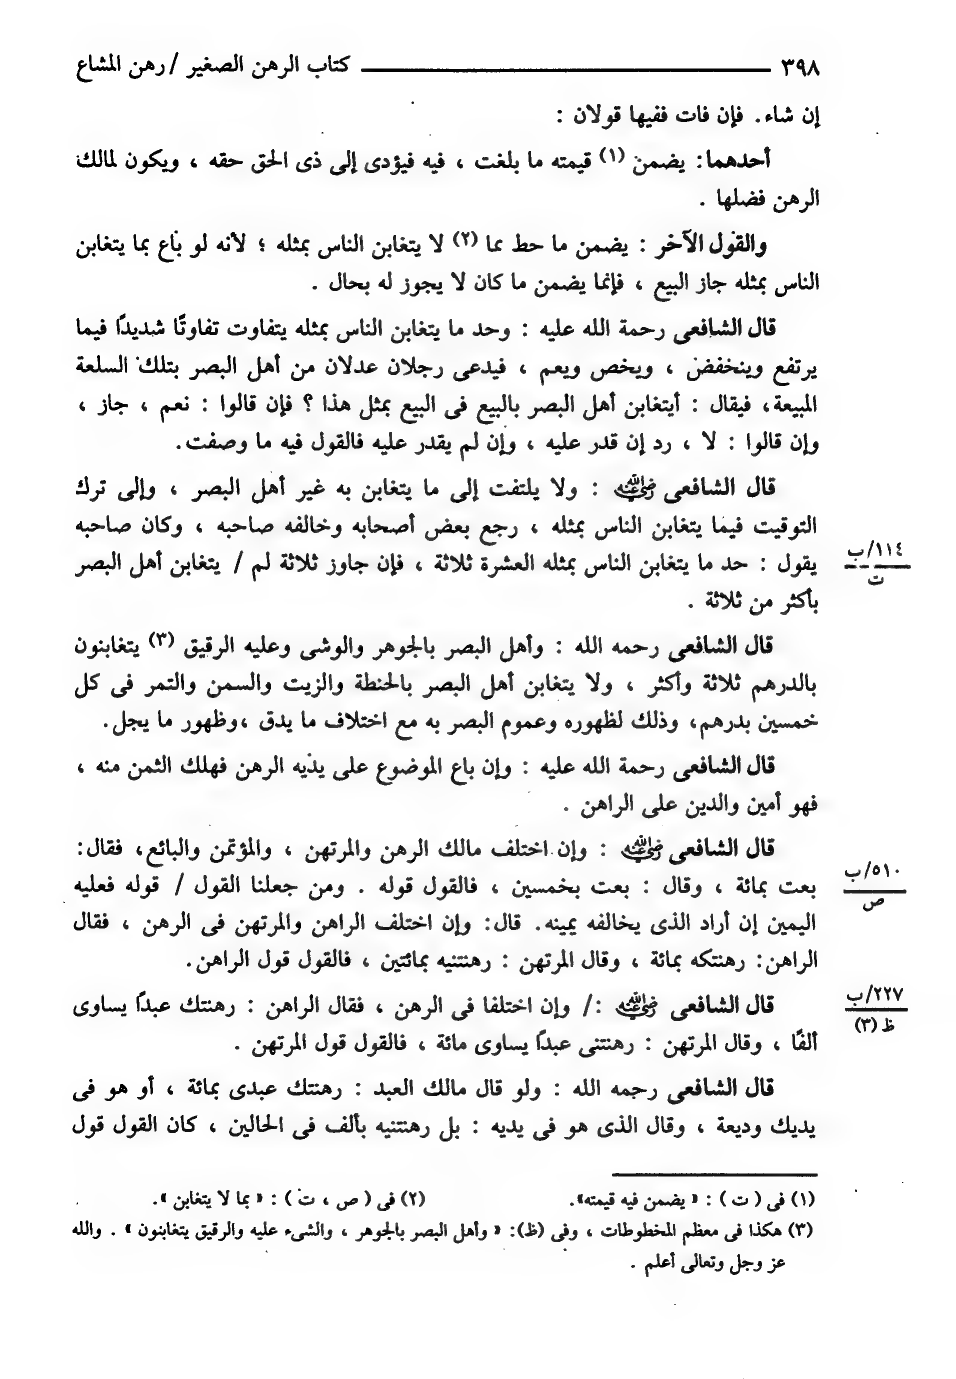 ٣٩٨ كتاب الرهن الصغير / رهن المشاع
إن شاء. فإن فات ففيها قولان :
أحدهما: يضمن (١) قيمته ما بلغت ، فيه فيؤدى إلى ذى الحق حقه ، ويكون لمالك
الرهن فضلها .
والقول الآخر : يضمن ما حط بما (٢) لا يتغابن الناس بمثله ؛ لأنه لو باع بما يتغابن
الناس بمثله جاز البيع ، فإنما يضمن ما كان لا يجوز له بحال .
قال الشافعى رحمة الله عليه : وحد ما يتغابن الناس بمثله يتفاوت تفاوتًا شديدًا فيما
يرتفع وينخفض ، ويخص ويعم ، فيدعى رجلان عدلان من أهل البصر بتلك السلعة
المبيعة، فيقال : أيتغابن أهل البصر بالبيع فى البيع بمثل هذا ؟ فإن قالوا : نعم ، جاز ،
وإن قالوا : لا ، رد إن قدر عليه ، وإن لم يقدر عليه فالقول فيه ما وصفت.
قال الشافعى رضي الله عنه : ولا يلتفت إلى ما يتغابن به غير أهل البصر ، وإلى ترك
التوقيت فيما يتغابن الناس بمثله ، رجع بعض أصحابه وخالفه صاحبه ، وكان صاحبه
يقول : حد ما يتغابن الناس بمثله العشرة ثلاثة ، فإن جاوز ثلاثة لم / يتغابن أهل البصر
١١٤/ب
ت
بأكثر من ثلاثة .
قال الشافعى رحمه الله : وأهل البصر بالجوهر والوشى وعليه الرقيق (٣) يتغابنون
بالدرهم ثلاثة وأكثر ، ولا يتغابن أهل البصر بالحنطة والزيت والسمن والتمر فى كل
خمسين بدرهم، وذلك لظهوره وعموم البصر به مع اختلاف ما يدق ،وظهور ما يجل.
قال الشافعى رحمة الله عليه : وإن باع الموضوع على يديه الرهن فهلك الثمن منه ،
فهو أمين والدين على الراهن .
قال الشافعى رضي الله عنه : وإن اختلف مالك الرهن والمرتهن ، والمؤتمن والبائع، فقال:
بعت بمائة ، وقال : بعت بخمسين ، فالقول قوله . ومن جعلنا القول / قوله فعليه
٥١٠/ب
ص
اليمين إن أراد الذى يخالفه يمينه. قال: وإن اختلف الراهن والمرتهن فى الرهن ، فقال
الراهن: رهنتكه بمائة ، وقال المرتهن : رهنتنيه بمائتين ، فالقول قول الراهن.
قال الشافعى رضي الله عنه :/ وإن اختلفا فى الرهن ، فقال الراهن : رهنتك عبدًا يساوى
٢٢٧/ب
ظ (٣)
ألفًا ، وقال المرتهن : رهنتنى عبدًا يساوى مائة ، فالقول قول المرتهن .
قال الشافعى رحمه الله : ولو قال مالك العبد : رهنتك عبدى بمائة ، أو هو فى
يديك وديعة ، وقال الذى هو فى يديه : بل رهنتنيه بألف فى الحالين ، كان القول قول
(١) فى ( ت ) : « يضمن فيه قيمته». (٢) فى ( ص ، ت ) : « بما لا يتغابن ».
(٣) هكذا فى معظم المخطوطات ، وفى (ظ): « وأهل البصر بالجوهر ، والشىء عليه والرقيق يتغابنون » . والله
عز وجل وتعالى أعلم .